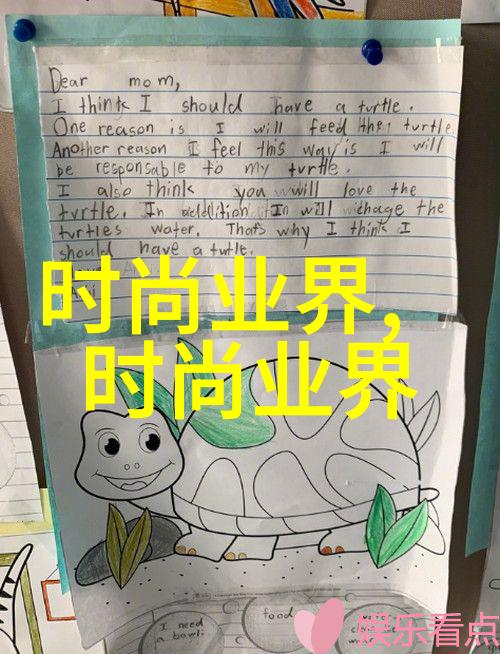 Dear mom,
I think I should have a turtle.
One reason is I will feed the turtle.
Another reason I feel this way is I will
be responsable to my turtle.
I also think you will love the
turtle. In addition I will change the
turtles water. Thats why I think I
should have a turtle.
时尚业界,
时尚业界
I need
a bowl
food
娱乐看点